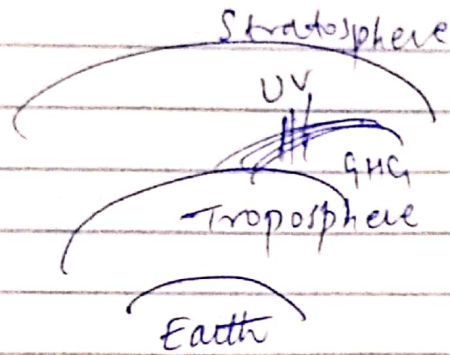 Stratosphere
UV
GHG
Troposphere
Earth